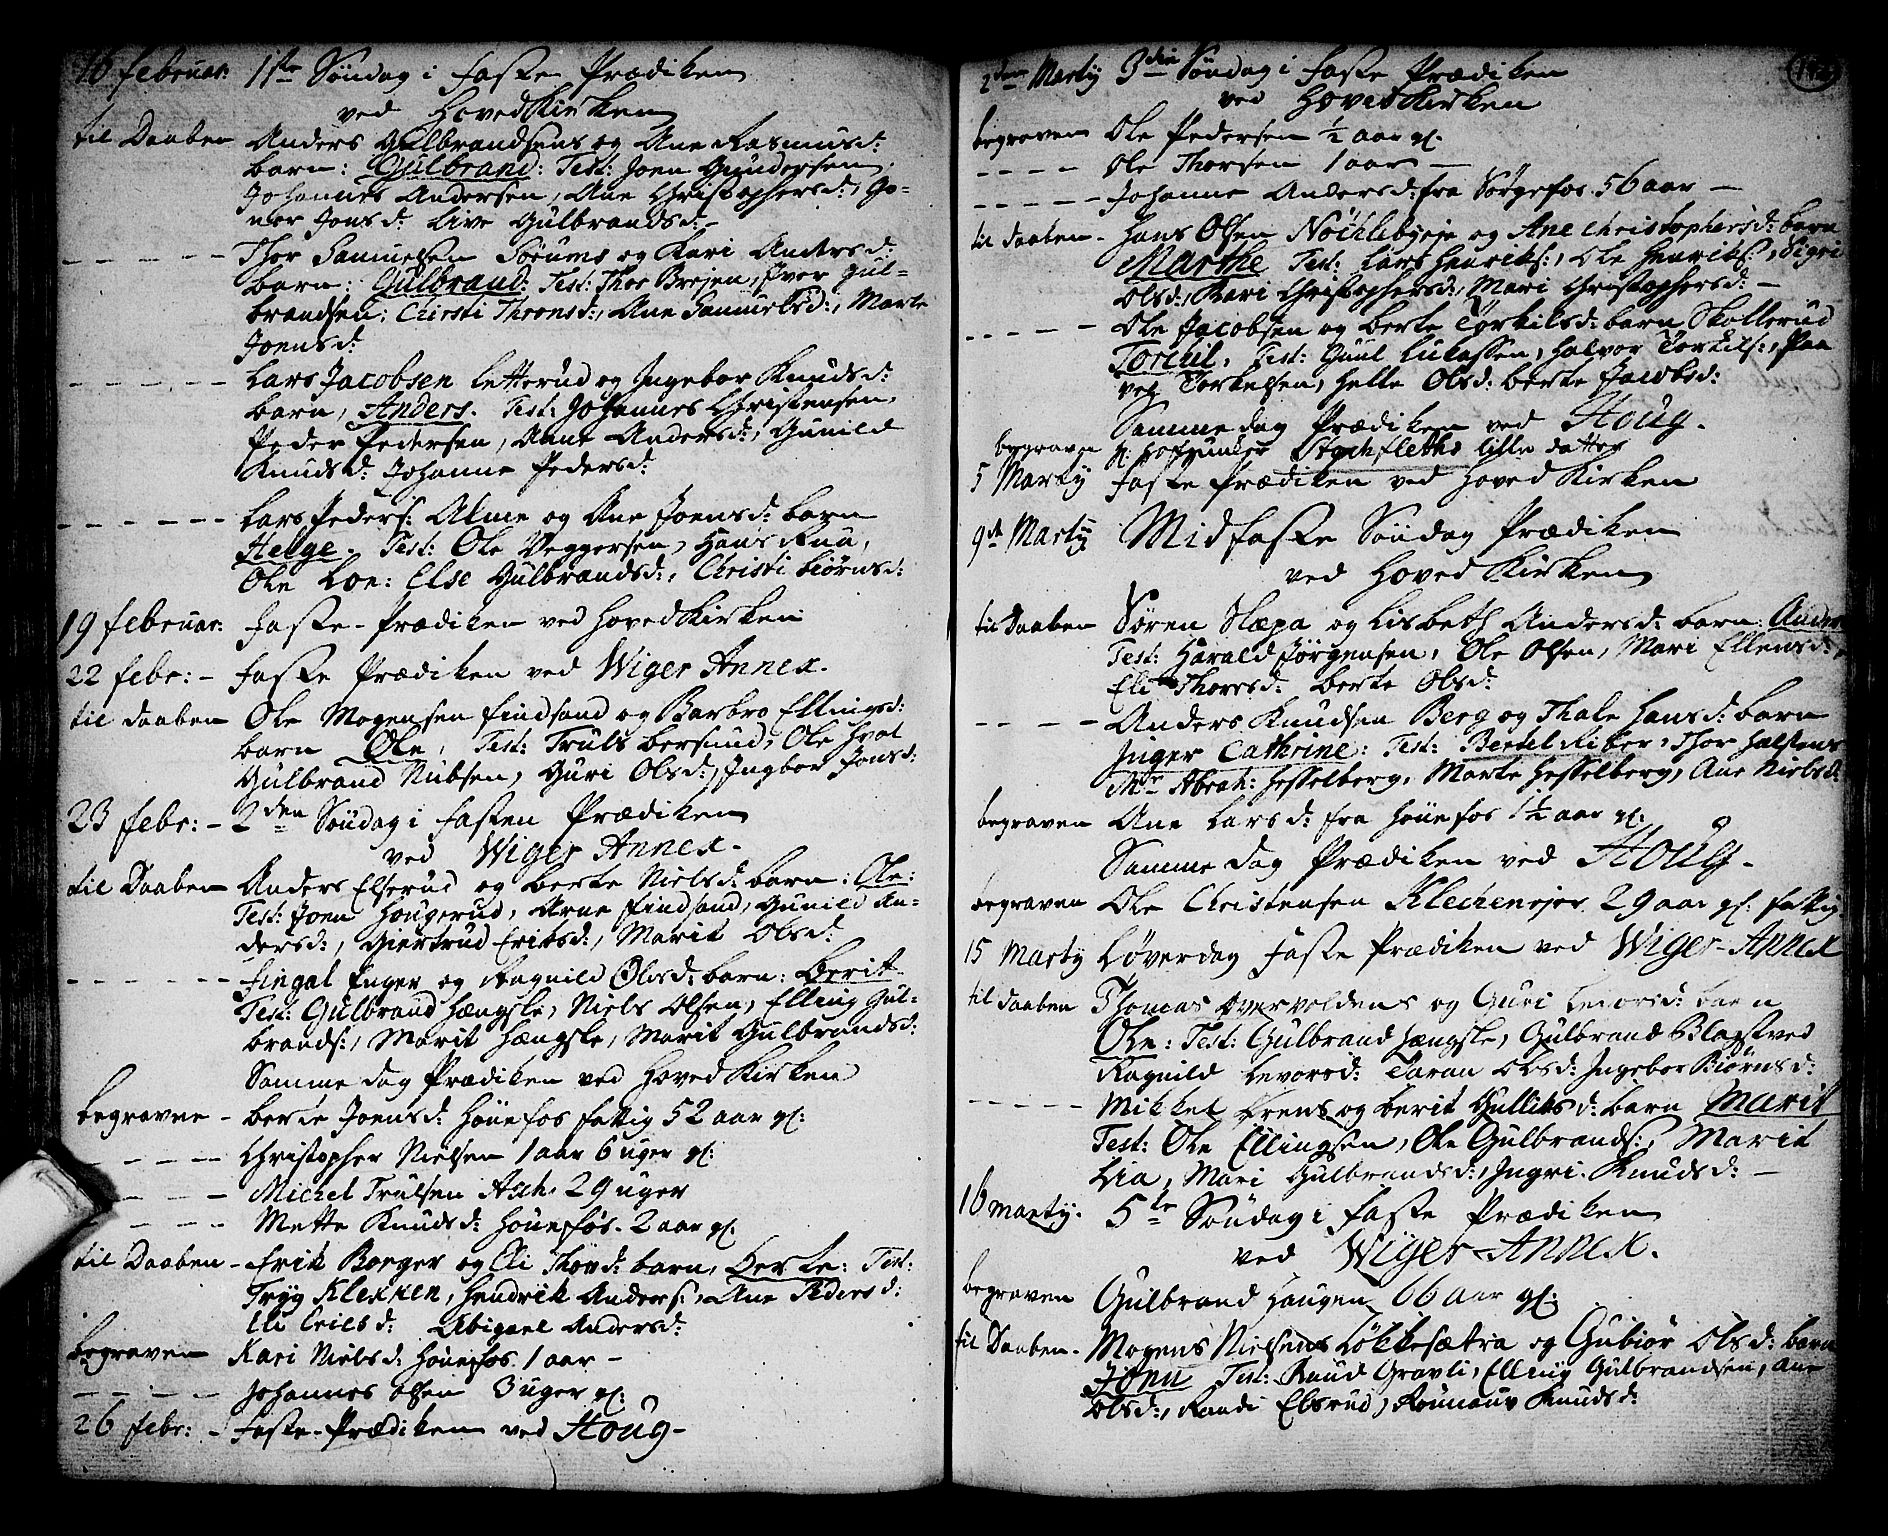 16 februar: 1ste Söndag i faste Prædiken
ved HovedKirken
til Daaben Anders Gulbrandsens og Ane Rasmusd:
barn: Gulbrand: Test: Joen Gundersen,
Johannes Andersen, Ane Christophersd:, Go-
nor Jonsd: Live Gulbrandsd: -
- - - - - - Thor Samuelsen Sörums og Kari Andersd:
barn: Gulbrand: Test: Thor Brejen, Iver Gul-
brandsen: Chirsti Thronsd:, Ane Samuelsd:, Marte
Joensd:
- - - - - - Lars Jacobsen Letterud og Ingebor Knudsd:
barn, Anders. Test: Johannes Christensen,
Peder Pedersen, Anne Andersd:, Gunild
Knudsd: Johanne Pedersd:
- - - - - - Lars Peders: Alme og Ane Joensd: barn
Helge. Test: Ole Veggersen, Hans Rua,
Ole Loe: Else Gulbrandsd:, Christi Biörnsd:
19 februar: faste-Prædiken ved HovedKirken
22 febr: - faste Prædiken ved Wiger Annex.
til Daaben Ole Mogensen findsand og Barbro Ellingsd:
barn Ole, Test: Truls Bersund, Ole Hval
Gulbrand Nubsen, Guri Olsd:, Ingbor Jonsd:
23 febr: - 2den Söndag i fasten Prædiken
ved Wiger Annex.
til Daaben Anders Elserud og Berte Nielsd: barn: Ole:
Test: Joen Hougerud, Arne findsand, Gunild An-
dersd:, Giertrud Eriksd:, Marit Olsd:
- - - - - - Fingal Enger og Ragnild Olsd: barn: Berit
Test: Gulbrand Hængsle, Niels Olsen, Elling Gul-
brands:, Marit Hængsle, Marit Gulbrandsd:
Samme dag Prædiken ved HovedKirken
begravne - Berte Joensd: Hönefos fattig 52 aar gl:
- - - - Christopher Nielsen 1 aar 6 uger gl:
- - - - Michel Trulsen Ask. 29 uger
- - - - Mette Knudsd: Hönefos. 2 aar gl:
til Daaben - Erik Borger og Eli Thovd: barn, Berte: Test:
Tryg Klekken, Hendrik Anders:, Ane Pedersd:
Eli Erilsd: Abigael Andersd:
begraven Kari Nielsd: Hönefos. 1 aar -
- - - - - Johannes Olsen 3 uger gl:
26 febr: - Faste-Prædiken ved Houg -
2den Marty 3die Söndag i faste Prædiken
ved HovetKirken
begraven Ole Pedersen ½ aar gl.
- - - - Ole Thorsen 1 aar -
- - - - - Johanne Andersd: fra Sörgefos. 56 aar -
til daaben - Hans Olsen Nöchlebye og Ane Christophersd: barn
Marthe Test: Lars Henriks:, Ole Henriks:, Sigri
Olsd:, Kari Christophersd:, Mari Christophersd: -
- - - - - Ole Jacobsen og Berte Törkilsd: barn Skollerud
Torchil, Test: Guul Lukassen, Halvor Torkils:, Paa
vel Torkelsen, Helle Olsd: Berte Jacobsd:
Samme dag Prædiken ved Houg.
begraven Stochfleths lille datter
5 Marty faste Prædiken ved HovedKirken
9de Marty Midfaste Söndag Prædiken
ved HovedKirken
til Daaben Sören Slæpa og Lisbeth Andersd: barn: Anders
Test: Harald Jörgensen, Ole Olsen, Mari Ellensd:,
Eli Thoresd: Berte Olsd:
- - - - Anders Knudsen Berg og Thale Hansd: barn
Inger Cathrine: Test: Bertel Riber, Thor Halstens
Mdr Abrah: Hesselberg, Marte Hesselberg, Ane Nielsd:
begraven Ane Larsd: fra Hönefos 1½ aar gl:
Samme dag Prædiken ved Houg -
begraven Ole Christensen Klechenejer 29 aar gl: fattig
15 Marty Löverdag faste Prædiken ved Wiger-Annex
til daaben Thomas Overvoldens og Guri Levorsd: barn
Ole: Test: Gulbrand Hængsle, Gulbrand Blagstved
Ragnild Levorsd: Taran Olsd: Ingebor Biörnsd:
- - - - - Mikkel Brens og Berit Gulliksd: barn Marit
Test: Ole Ellingsen, Ole Gulbrands:, Marit
Lia, Mari Gulbrandsd:, Ingri Knudsd: -
16 marty. 5te Söndag i faste Prædiken
ved Wiger-Annex.
begraven Gulbrand Haugen 66 aar gl:
til Daaben. Mogens Nielsens Lökkesætra og Gubiör Olsd: barn
John Test: Knud Gravli, Elling Gulbrandsen, Ane
Olsd:, Randi Elsrud, Rönnauv Knudsd: